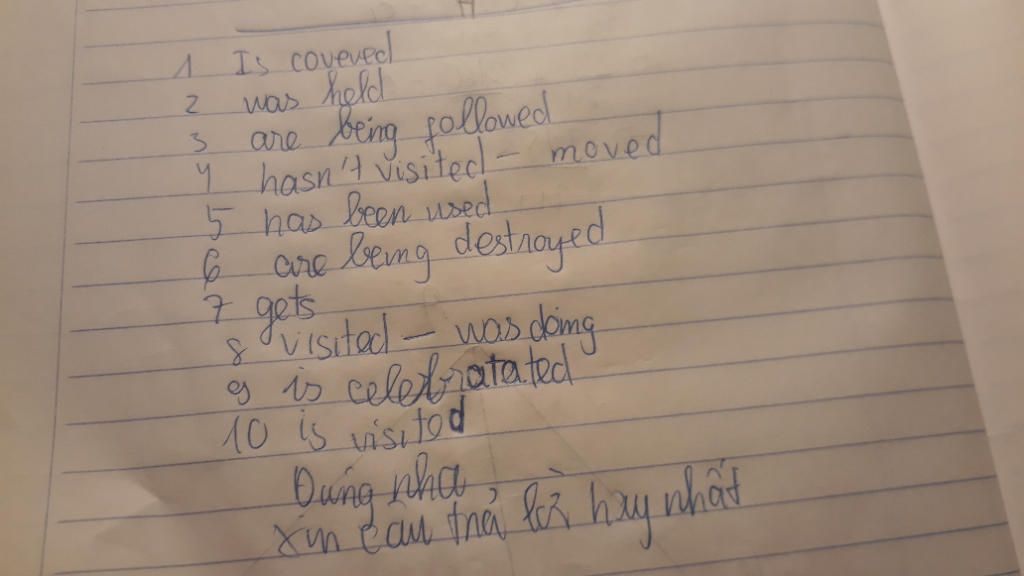 1 Is coveved
2 was held
3 are being followed
4 hasn't visited - moved
5 has been used
6 are being destroyed
7 gets
8 visited - was doing
9 is celebratated
10 is visited
Đúng nha
xin câu trả lời hay nhất